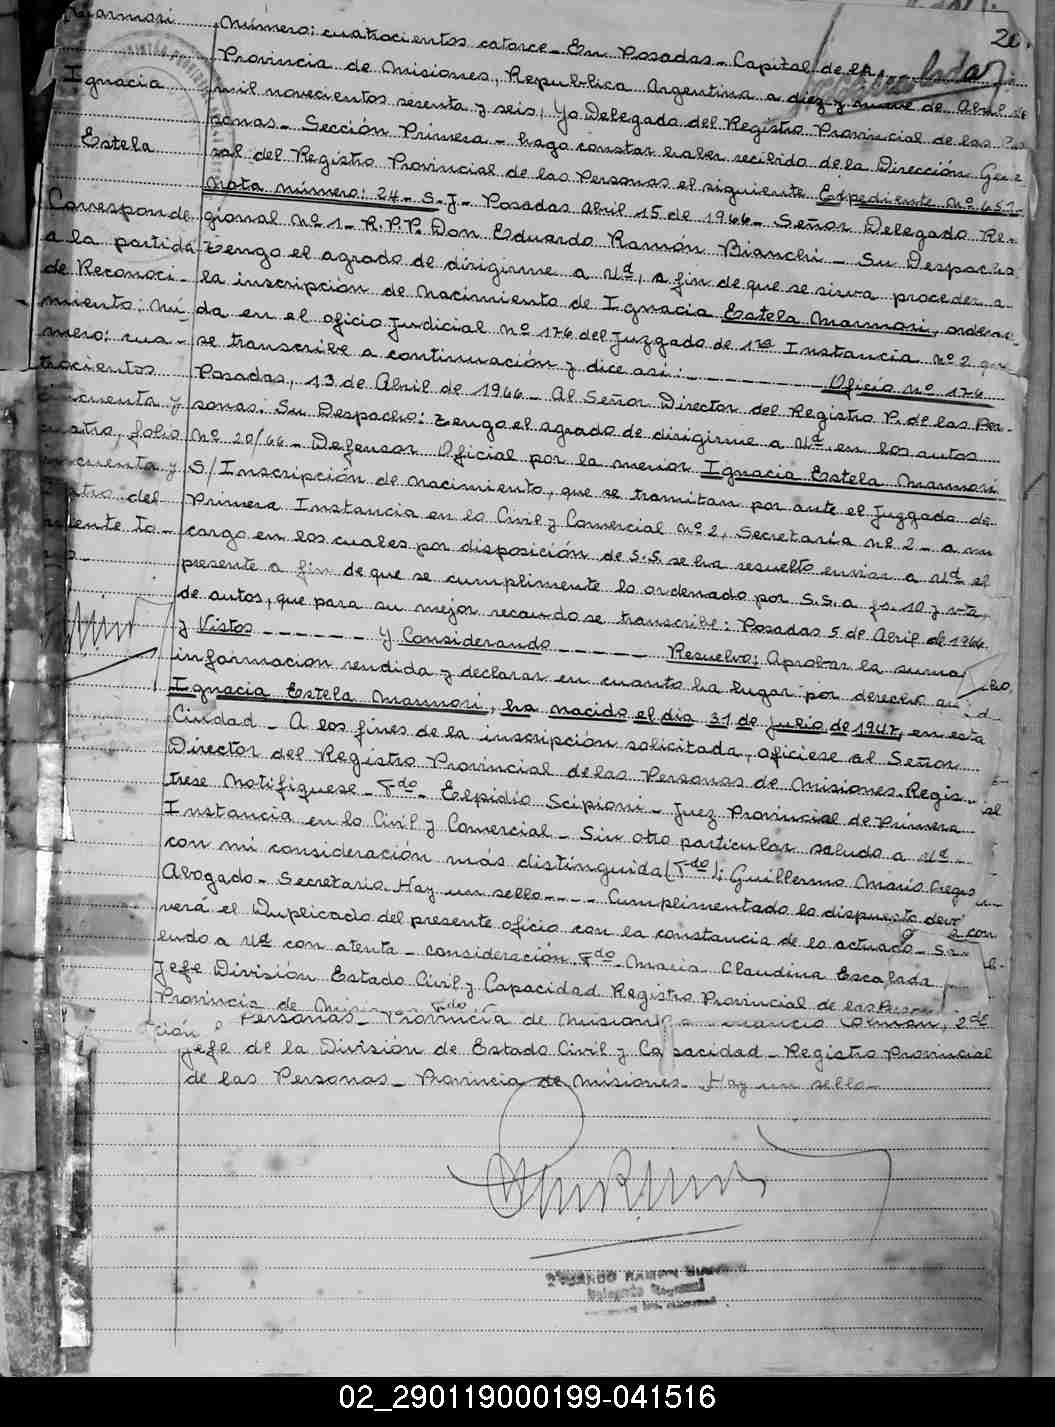 26.
Marmori
Ignacia
Estela
Corresponde
a la partida
de Reconoci-
miento: Nú-
mero: cua-
trocientos
cincuenta y
cuatro, folio
cincuenta y
cuatro del
Número: cuatrocientos catorce - En Posadas - Capital de la
Provincia de Misiones, Republica Argentina a diez y nueve de Abril de
mil novecientos sesenta y seis, Yo Delegado del Registro Provincial de las Per
sonas - Sección Primera - hago constar haber recibido de la Dirección Gene
ral del Registro Provincial de las Personas el siguiente Expediente Nº 657-
Nota número: 24 - S.J - Posadas Abril 15 de 1966 - Señor Delegado Re-
gional Nº 1 - R.P.P. Don Eduardo Ramón Bianchi - Su Despacho
Tengo el agrado de dirigirme a Ud, a fin de que se sirva proceder a
la inscripción de nacimiento de Ignacia Estela Marmori, ordena-
da en el oficio Judicial nº 176 del Juzgado de 1ra Instancia nº 2 que
se transcribe a continuación y dice asi: - - - - - Oficio nº 176
Posadas, 13 de Abril de 1966 - Al Señor Director del Registro P. de las Per-
sonas: Su Despacho: Tengo el agrado de dirigirme a Ud. en los autos
Nº 20/66 - Defensor Oficial por la menor Ignacia Estela Marmori
S/ Inscripción de nacimiento, que se tramitan por ante el Juzgado de
Primera Instancia en lo Civil y Comercial nº 2, Secretaría nº 2 - a mi
cargo en los cuales por disposición de S.S. se ha resuelto enviar a Ud el
presente a fin de que se cumplimente lo ordenado por S.S. a fs. 10 y vta,
de autos, que para su mejor recaudo se transcribe: Posadas 5 de Abril de 1966
y Vistos - - - - - - Y Considerando - - - - - Resuelvo: Aprobar la suma
informacion rendida y declarar en cuanto ha lugar por derecho
Ignacia Estela Marmori, ha nacido el dia 31 de Julio de 1947, en esta
Ciudad - A los fines de la inscripción solicitada, oficiese al Señor
Director del Registro Provincial de las Personas de Misiones - Regis-
trese Notifiquese - Fdo - Elpidio Scipioni - Juez Provincial de Primera
Instancia en lo Civil y Comercial - Sin otro particular saludo a Ud -
con mi consideración más distinguida (Fdo): Guillermo Mario
Abogado - Secretario Hay un sello - - - - Cumplimentado lo dispuesto
verá el Duplicado del presente oficio con la constancia de lo actuado -
ludo a Ud con atenta - consideración Fdo Maria Claudina Escalada
Jefe División Estado Civil y Capacidad Registro Provincial de las
Provincia de
Personas - Provincia de Misiones Colman, 2do
Jefe de la División de Estado Civil y Capacidad - Registro Provincial
de las Personas - Provincia de Misiones - Hay un sello -
EDUARDO RAMON BIANCHI
Delegado Regional
02_290119000199-041516